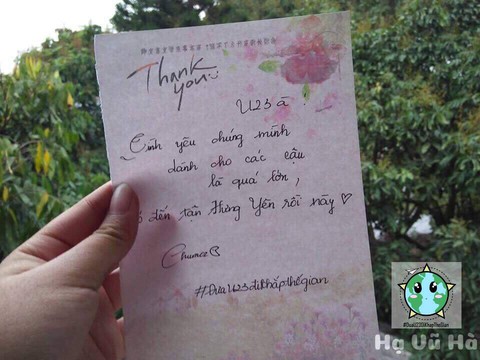 Thank
you
U23 à
Tình yêu chúng mình
dành cho các cậu
là quá lớn,
đến tận Hưng Yên rồi này ♡
#ĐưaU23đikhắpthếgian
#ĐưaU23ĐiKhắpThếGian
Hạ Vũ Hà